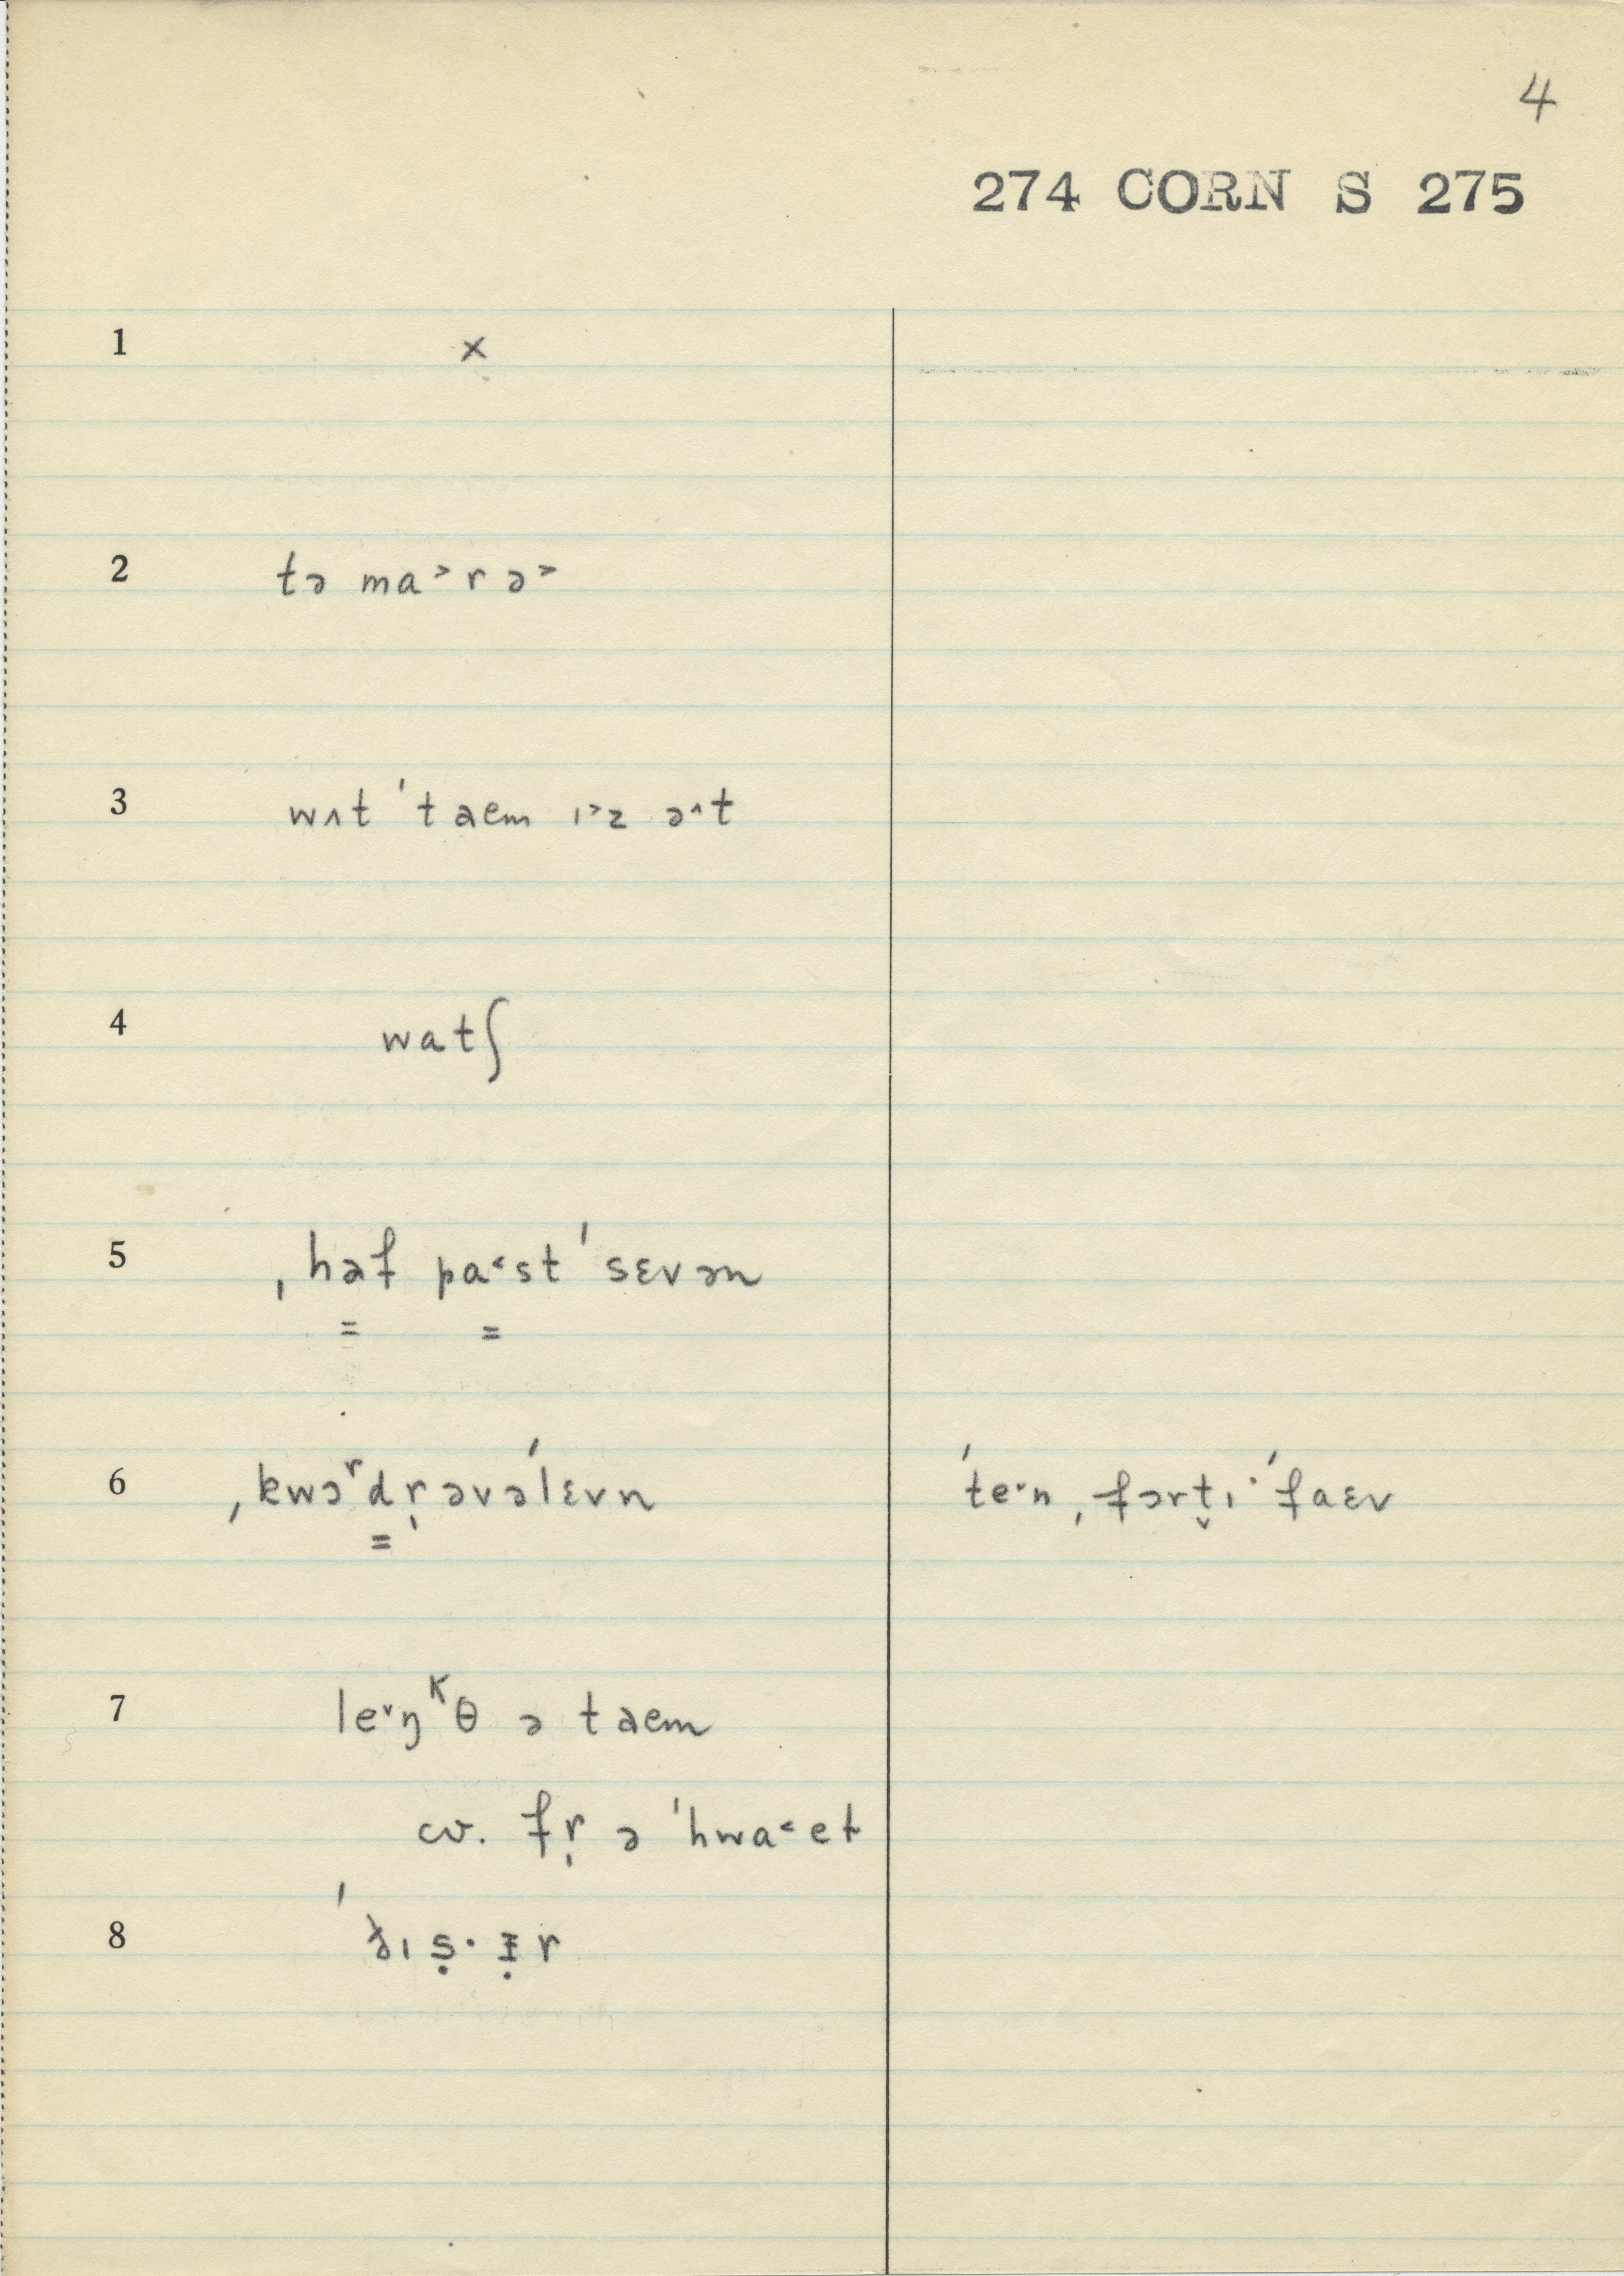 4
274 CORN S 275
1 ×
2 tə ma˃rə˃
3 wʌt ˈtaem ɪ˃z ə^t
4 watʃ
5 ˌhəf pa˂st ˈsɛvən
6 ˌkwɔʳdr̩əvəˈlɛvn ˈteˇn ˌfɔrt̬ɪ· ˈfaɛv
7 leˇŋᴷθ ə taem
cv. fr̩ ə ˈhwa˂et